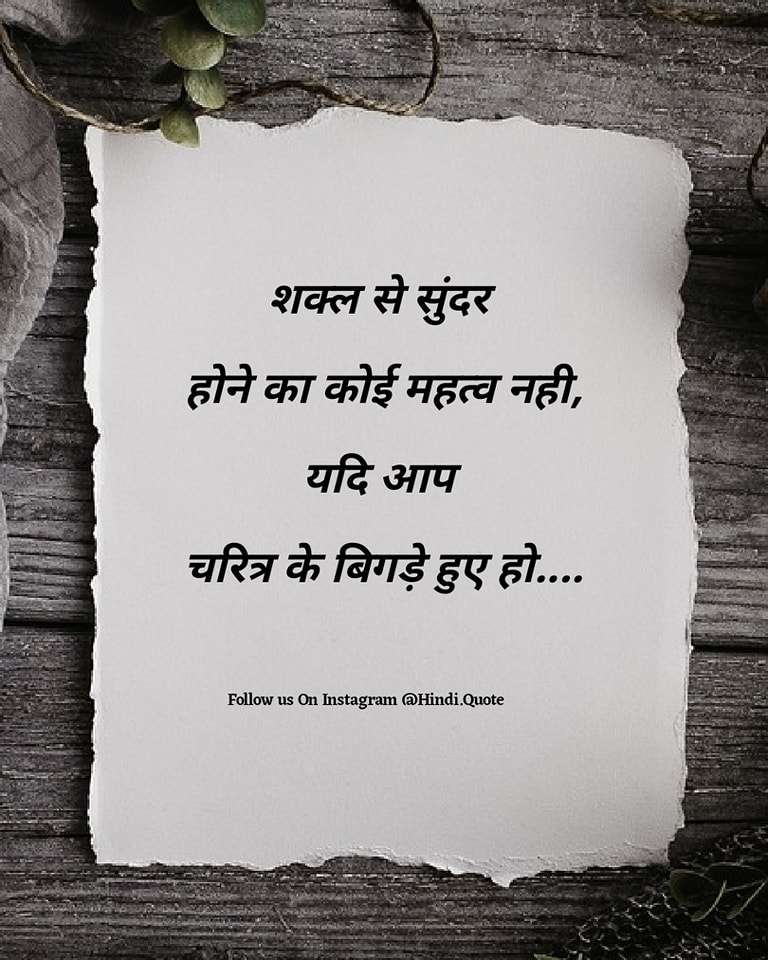 शक्ल से सुंदर
होने का कोई महत्व नही,
यदि आप
चरित्र के बिगड़े हुए हो....
Follow us On Instagram @Hindi.Quote